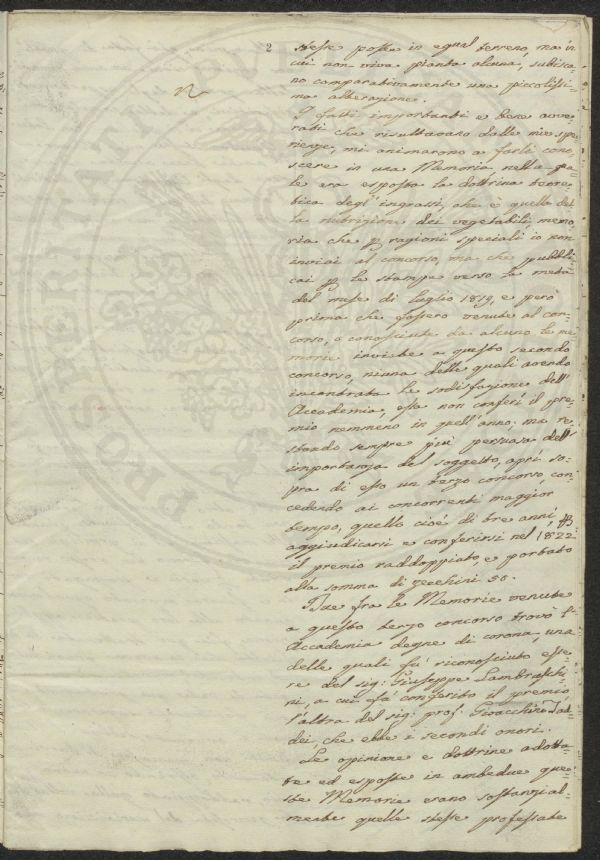 2
stesse poste in egual terreno, ma in
cui non viva pianta alcuna, subisca=
no comparativamente una piccolissi=
ma alterazione.
I fatti importanti e bene avve=
rati che risultavano dalle mie spe=
rienze, mi animarono a farli cono=
scere in una Memoria nella qua=
le era esposta la dottrina teore=
tica degl'ingrassi, che è quella del
la nutrizione dei vegetabili, memo=
ria che p ragioni speciali io non
inviai al concorso, ma che pubbli=
cai p le stampe verso la metà
del mese di luglio 1819, e però
prima che fossero venute al con=
corso, o conosciute da alcuno le me=
morie inviate a questo secondo
concorso, niuna delle quali avendo
incontrata la sodisfazione dell'
Accademia, essa non conferì il pre=
mio nemmeno in quell'anno; ma re=
stando sempre più persuasa dell'
importanza del soggetto, aprì so=
pra di esso un terzo concorso, con=
cedendo ai concorrenti maggior
tempo, quello cioè di tre anni, p
aggiudicarsi e conferirsi nel 1822
il premio raddoppiato, e portato
alla somma di zecchini 50.
Due fra le Memorie venute
a questo terzo concorso trovò l'
Accademia degne di corona, una
delle quali fù riconosciuto esse=
re del sig: Giuseppe Lambruschi=
ni, a cui fù conferito il premio,
l'altra del sig: prof: Gioacchino Tad=
dei, che ebbe i secondi onori.
Le opinione e dottrine adotta=
te ed esposte in ambedue que=
ste Memorie erano sostanzial=
mente quelle stesse professate
PROSPERITATI